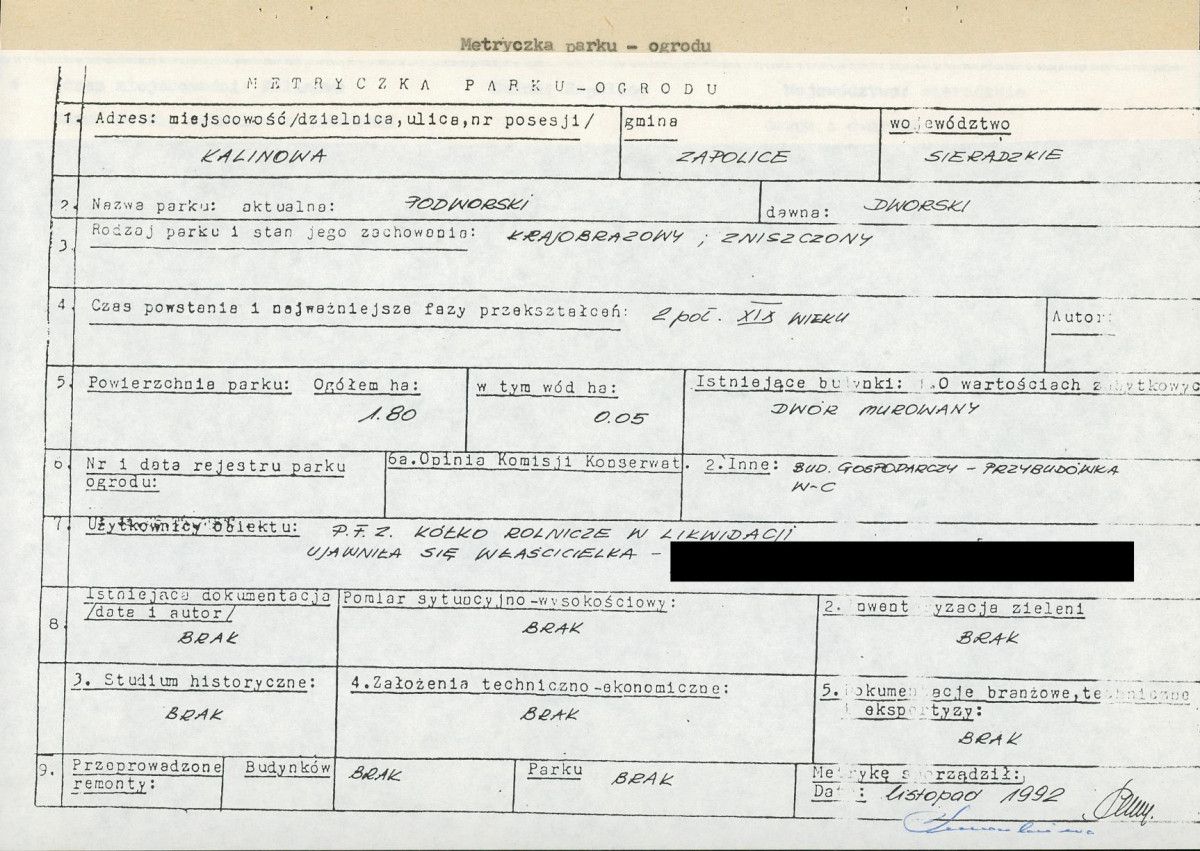 Metryczka parku - ogrodu
METRYCZKA PARKU-OGRODU
1. Adres: miejscowość/dzielnica,ulica,nr posesji/ gmina województwo
KALINOWA ZAPOLICE SIERADZKIE
2. Nazwa parku: aktualna: PODWORSKI dawna: DWORSKI
3. Rodzaj parku i stan jego zachowania: KRAJOBRAZOWY; ZNISZCZONY
4. Czas powstania i najważniejsze fazy przekształceń: 2 poł. XIX WIEKU Autor:
5. Powierzchnia parku: Ogółem ha: w tym wód ha: Istniejące budynki: 1.O wartościach zabytkowyc
1.80 0.05 DWÓR MUROWANY
6. Nr i data rejestru parku ogrodu: 6a.Opinia Komisji Konserwat. 2. Inne: BUD. GOSPODARCZY - PRZYBUDÓWKA
W-C
7. Użytkownicy obiektu: P.F.Z. KÓŁKO ROLNICZE W LIKWIDACJI
UJAWNIŁA SIĘ WŁAŚCICIELKA -
8. Istniejąca dokumentacja /data i autor/ Pomiar sytuacyjno-wysokościowy: 2. Inwentaryzacja zieleni
BRAK BRAK BRAK
3. Studium historyczne: 4.Założenia techniczno-ekonomiczne: 5. Dokumentacje branżowe,techniczne
i ekspertyzy:
BRAK BRAK BRAK
9. Przeprowadzone remonty: Budynków BRAK Parku BRAK Metrykę sporządził:
Data: listopad 1992